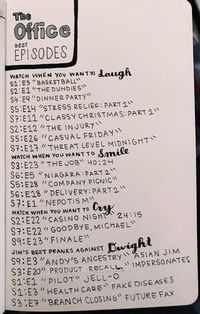 The
Office
BEST
EPISODES
WATCH WHEN YOU WANT TO Laugh
S1:E5 "BASKETBALL"
S2:E1 "THE DUNDIES"
S4:E9 "DINNER PARTY"
S5:E14 "STRESS RELIEF: PART 1"
S7:E11 "CLASSY CHRISTMAS: PART 1"
S2:E12 "THE INJURY"
S5:E26 "CASUAL FRIDAY"
S7:E17 "THREAT LEVEL MIDNIGHT"
WATCH WHEN YOU WANT TO Smile
S3:E23 "THE JOB" 40:24
S6:E5 "NIAGARA: PART 2"
S5:E28 "COMPANY PICNIC"
S6:E18 "DELIVERY: PART 2"
S7:E1 "NEPOTISM"
WATCH WHEN YOU WANT TO Cry
S2:E22 "CASINO NIGHT" 24:15
S7:E22 "GOODBYE, MICHAEL"
S9:E23 "FINALE"
JIM'S BEST PRANKS AGAINST Dwight
S9:E3 "ANDY'S ANCESTRY" ASIAN JIM
S3:E20 "PRODUCT RECALL" IMPERSONATES
S1:E1 "PILOT" JELL-O
S1:E3 "HEALTH CARE" FAKE DISEASES
S3:E7 "BRANCH CLOSING" FUTURE FAX